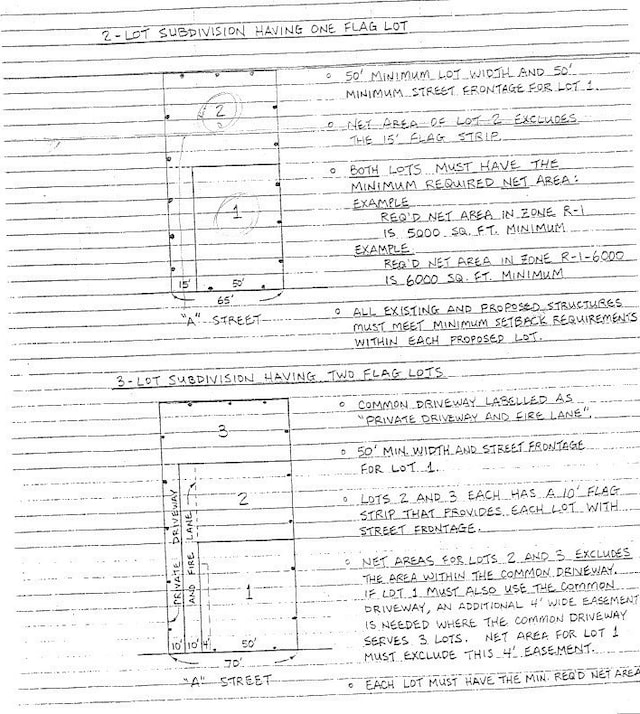 2-LOT SUBDIVISION HAVING ONE FLAG LOT
2
1
15'
50'
65'
"A" STREET
° 50' MINIMUM LOT WIDTH AND 50'
MINIMUM STREET FRONTAGE FOR LOT 1.
° NET AREA OF LOT 2 EXCLUDES
THE 15' FLAG STRIP.
° BOTH LOTS MUST HAVE THE
MINIMUM REQUIRED NET AREA:
EXAMPLE
REQ'D NET AREA IN ZONE R-1
IS 5000 SQ. FT. MINIMUM
EXAMPLE
REQ'D NET AREA IN ZONE R-1-6000
IS 6000 SQ. FT. MINIMUM
° ALL EXISTING AND PROPOSED STRUCTURES
MUST MEET MINIMUM SETBACK REQUIREMENTS
WITHIN EACH PROPOSED LOT.
3-LOT SUBDIVISION HAVING TWO FLAG LOTS
3
2
1
PRIVATE DRIVEWAY
AND FIRE LANE
10' 10' 4' 50'
70'
"A" STREET
° COMMON DRIVEWAY LABELLED AS
"PRIVATE DRIVEWAY AND FIRE LANE".
° 50' MIN. WIDTH AND STREET FRONTAGE
FOR LOT 1.
° LOTS 2 AND 3 EACH HAS A 10' FLAG
STRIP THAT PROVIDES EACH LOT WITH
STREET FRONTAGE.
° NET AREAS FOR LOTS 2 AND 3 EXCLUDES
THE AREA WITHIN THE COMMON DRIVEWAY.
IF LOT 1 MUST ALSO USE THE COMMON
DRIVEWAY, AN ADDITIONAL 4' WIDE EASEMENT
IS NEEDED WHERE THE COMMON DRIVEWAY
SERVES 3 LOTS. NET AREA FOR LOT 1
MUST EXCLUDE THIS 4' EASEMENT.
° EACH LOT MUST HAVE THE MIN. REQ'D NET AREA